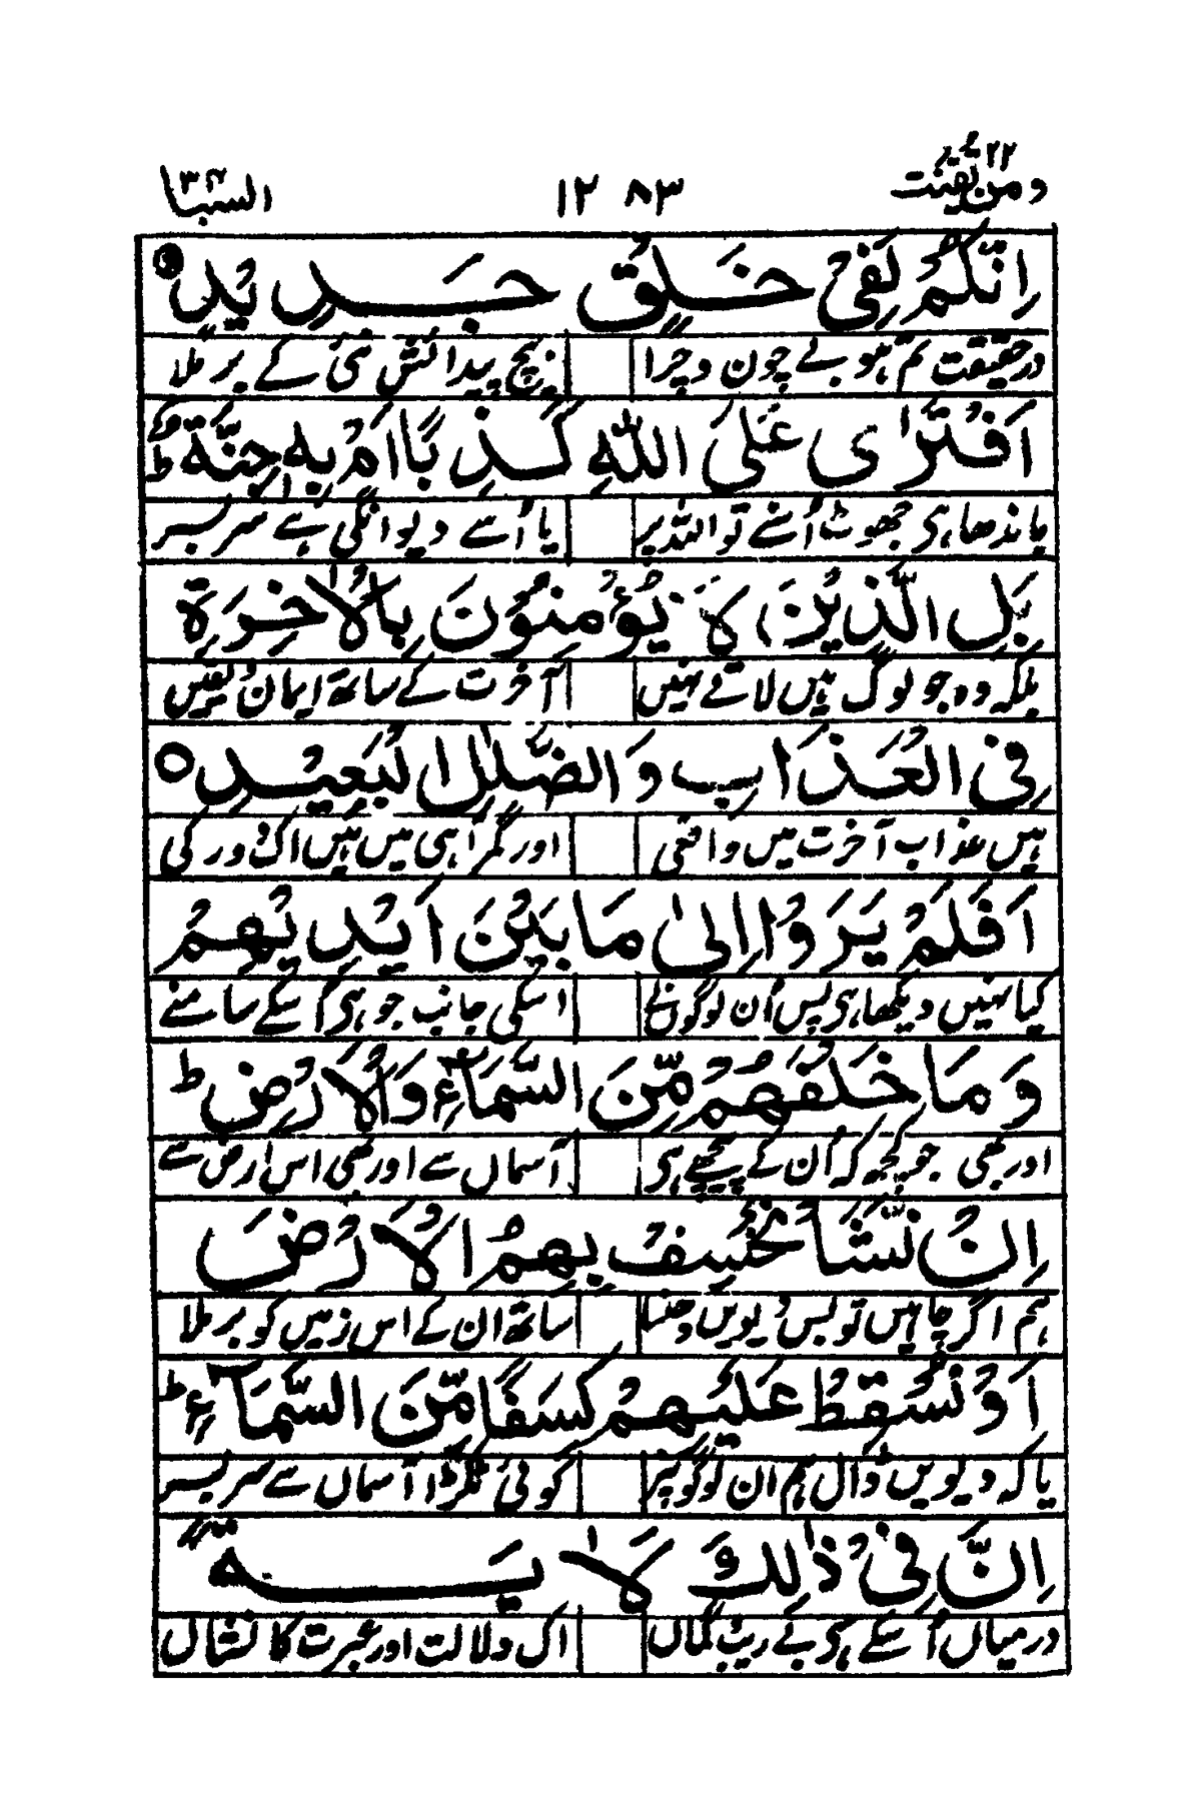 ومن یقنت ۲۲ ۱۲۸۳ السبا ۳۴
اِنَّكُمْ لَفِیْ خَلْقٍ جَدِیْدٍ
درحقیقت تم ہو بے چون و چرا بیچ پیدائش نئی کے بر ملا
اَفْتَرٰی عَلَی اللّٰهِ كَذِبًا اَمْ بِهٖ جِنَّةٌ ؕ
باندھا ہی جھوٹ اُسنے تو اللہ پر یا اُسے دیوانگی ہے سر بسر
بَلِ الَّذِیْنَ لَا یُؤْمِنُوْنَ بِالْاٰخِرَةِ
بلکہ وہ جو لوگ ہیں لاتے نہیں آخرت کے ساتھ ایمان و یقیں
فِی الْعَذَابِ وَالضَّلٰلِ الْبَعِیْدِ ○
ہیں عذاب آخرت میں واقعی اور گمراہی میں ہیں اک دور کی
اَفَلَمْ یَرَوْا اِلٰی مَا بَیْنَ اَیْدِیْهِمْ
کیا نہیں دیکھا ہی پس اُن لوگونے اسکی جانب جو ہی اُسکے سامنے
وَمَا خَلْفَهُمْ مِّنَ السَّمَآءِ وَالْاَرْضِ ؕ
اور بھی جو کچھ کہ اُن کے پیچھے ہی آسماں سے اور بھی اس ارض سے
اِنْ نَّشَاْ نَخْسِفْ بِهِمُ الْاَرْضَ
ہم اگر چاہیں تو بس دیویں دھنسا ساتھ ان کے اس زمیں کو بر ملا
اَوْ نُسْقِطْ عَلَیْهِمْ كِسَفًا مِّنَ السَّمَآءِ ؕ
یا کہ دیویں ڈال ہم ان لوگو نپر کوئی ٹکڑا آسماں سے سر بسر
اِنَّ فِیْ ذٰلِكَ لَاٰیَةً
درمیاں اُسکے ہی بے ریب و گماں اک دلالت اور عبرت کا نشاں